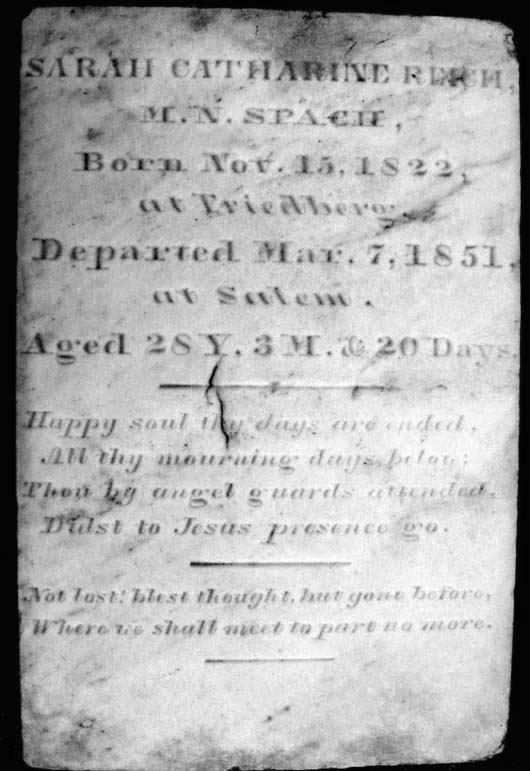 SARAH CATHARINE REICH,
M. N. SPACH,
Born Nov. 15, 1822,
at Friedberg.
Departed Mar. 7, 1851,
at Salem.
Aged 28 Y. 3 M. & 20 Days.
Happy soul thy days are ended,
All thy mourning days below;
Thou by angel guards attended,
Didst to Jesus presence go.
Not lost! blest thought, but gone before,
Where we shall meet to part no more.